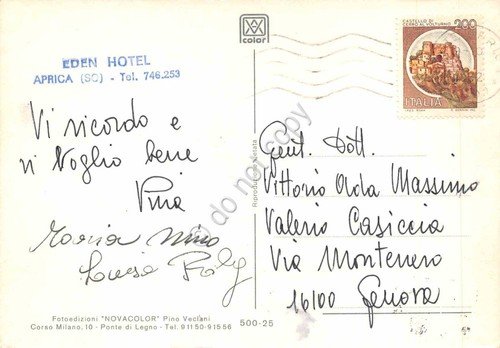 color
EDEN HOTEL
APRICA (SO) - Tel. 746.253
CASTELLO DI
CERRO AL VOLTURNO
200
ITALIA
Vi ricordo e
vi Voglio bene
Pina
Maria Nino
Luisa Roly
Gent. Dott.
Vittorio Alda Massimo
Valerio Casiccia
Via Montenero
16100 Genova
Riproduzione vietata
do not copy
Fotoedizioni "NOVACOLOR" Pino Veclani
Corso Milano, 10 - Ponte di Legno - Tel. 91150-91556
500-25